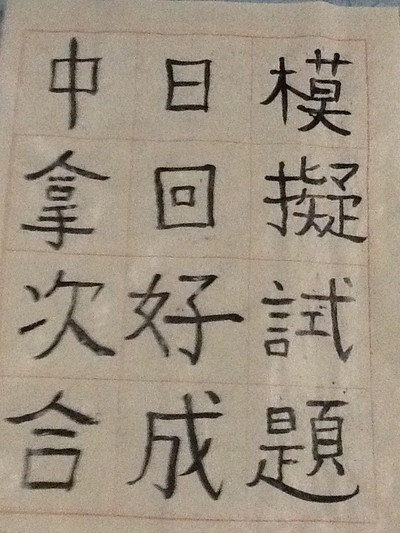 模擬試題
日回好成
中拿次合